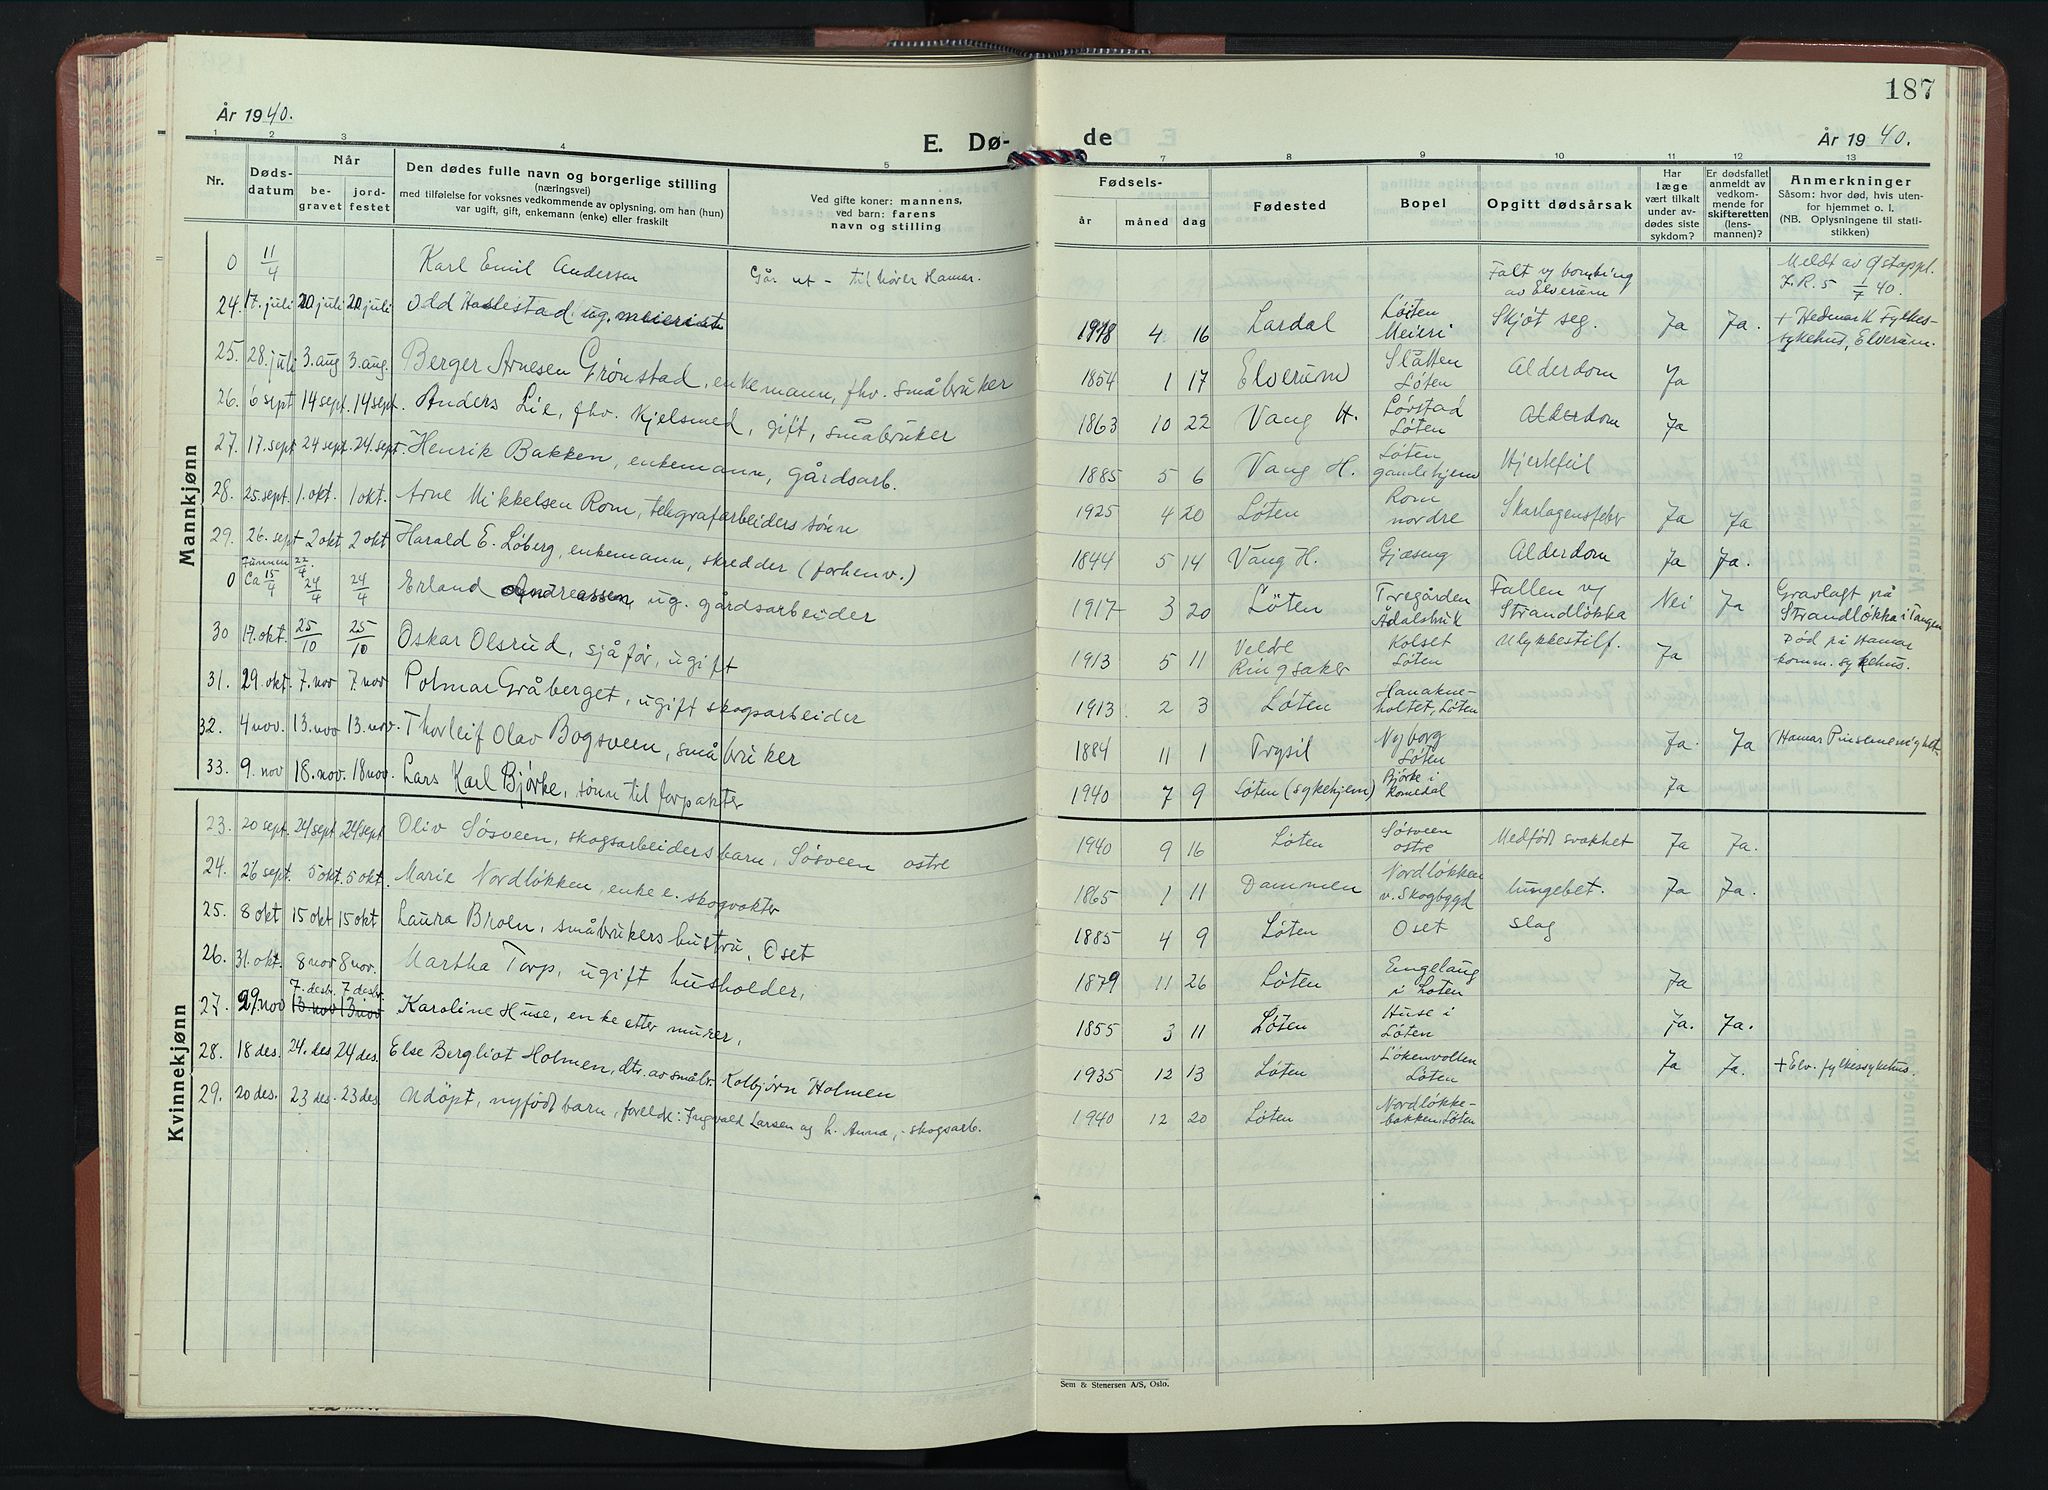 187
År 1940.
E. Dø-
de
År 1940.
1 2 3 4 5 7 8 9 10 11 12 13
Nr.
Døds-
datum
Når
be-
gravet
jord-
festet
Den dødes fulle navn og borgerlige stilling
(næringsvei)
med tilføielse for voksnes vedkommende av oplysning, om han (hun)
var ugift, gift, enkemann (enke) eller fraskilt
Ved gifte koner: mannens,
ved barn: farens
navn og stilling
Fødsels-
år måned dag
Fødested
Bopel
Opgitt dødsårsak
Har
læge
vært tilkalt
under av-
dødes siste
sykdom?
Er dødsfallet
anmeldt av
vedkom-
mende for
skifteretten
(lens-
mannen)?
Anmerkninger
Såsom: hvor død, hvis uten-
for hjemmet o. l.
(NB. Oplysningene til stati-
stikken)
Mannkjønn
0 11/4 Karl Emil Andersen Går ut - tilhører Hamar. Falt v/ bombing av Elverum Meldt av Østoppl. I.R. 5 1/7 40.
24. 17. juli 20 juli 20 juli Odd Haslestad ug. meierist 1918 4 16 Lardal Løiten Meieri Skjøt seg. Ja Ja. + Hedmark fylkes-sykehus, Elverum.
25. 28. juli 3. aug 3. aug. Berger Arnesen Grønstad, enkemann, fhv. småbruker 1854 1 17 Elverum Slåtten Løten Alderdom Ja
26. 6 sept 14 sept. 14 sept. Anders Lie, fhv. Kjelsmed, gift, småbruker 1863 10 22 Vang H. Løvstad Løten Alderdom Ja
27. 17. sept 24 sept. 24. sept. Henrik Bakken, enkemann, gårdsarb. 1885 5 6 Vang H. Løten gamlehjem Hjertefeil
28. 25. sept. 1. okt. 1 okt. Arne Mikkelsen Rom, telegrafarbeiders sønn 1925 4 20 Løten Rom nordre Skarlagensfeber Ja Ja
29. 26. sept 2 okt 2 okt Harald E. Løberg, enkemann, skredder (forhenv.) 1844 5 14 Vang H. Gjæseng Alderdom Ja Ja.
0 Funnen 22/4. Ca 15/4 24/4 24/4 Erland Andreassen, ug. gårdsarbeider 1917 3 20 Løten Tregården Ådalsbruk Fallen v/ Strandløkka Nei Ja Gravlagt på Strandløkka i Tangen
30 17. okt. 25/10 25/10 Oskar Olsrud, sjåfør, ugift 1913 5 11 Veldre Ringsaker Kolset Løten Ulykkestilf. Ja Død på Hamar komm. sykehus.
31. 29. okt. 7. nov 7. nov Polmar Gråberget, ugift skogsarbeider 1913 2 3 Løten Hanakne-holtet, Løten
32. 4 nov. 13. nov 13. nov. Thorleif Olav Bogsveen, småbruker 1884 11 1 Trysil Nyborg Løten Ja. Ja
33. 9. nov 18. nov. 18 nov. Lars Karl Bjørke, sønn til forpakter 1940 7 9 Løten (sykehjem) Bjørke i Romedal Ja
Kvinnekjønn
23. 20 sept. 24 sept 24 sept Oliv Søsveen, skogsarbeiders barn, Søsveen østre 1940 9 16 Løten Søsveen østre Medfødt svakhet Ja Ja.
24. 26 sept. 5 okt. 5 okt. Marie Nordløkken, enke e. skogvokter 1865 1 11 Dammen Nordløkken v. Skogbygd lungebet. Ja Ja.
25. 8 okt 15 okt 15 okt Laura Broen, småbrukers hustru, Oset 1885 4 9 Løten Oset slag
26. 31. okt. 8 nov 8 nov. Martha Torp, ugift husholder, 1879 11 26 Løten Engelaug i Løten Ja
27. 29. nov 7. desbr. 7 desbr. 13 nov 13 nov Karoline Huse, enke etter murer, 1855 3 11 Løten Huse i Løten Ja. Ja.
28. 18 des. 24. des 24 des. Else Bergliot Holmen, dtr. av småbr. Kolbjørn Holmen 1935 12 13 Løten Løkenvolten Løten Ja Ja. + Elv. fylkessykehus.
29. 20 des. 23 des. 23 des. Udøpt, nyfødt barn, foreldr: Ingvald Larsen og h. Anna, - skogsarb. 1940 12 20 Løten Nordløkke-bakken, Løten
Sem & Stenersen A/S, Oslo.